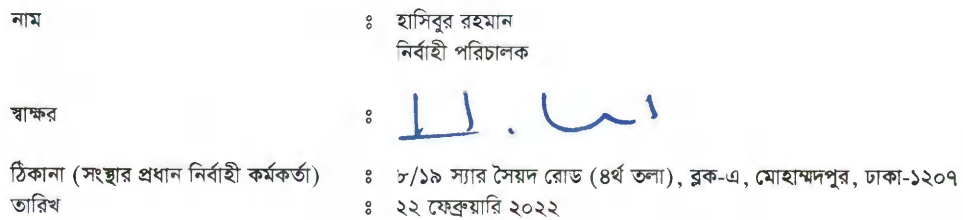 নাম : হাসিবুর রহমান
নির্বাহী পরিচালক
স্বাক্ষর :
ঠিকানা (সংস্থার প্রধান নির্বাহী কর্মকর্তা) : ৮/১৯ স্যার সৈয়দ রোড (৪র্থ তলা), ব্লক-এ, মোহাম্মদপুর, ঢাকা-১২০৭
তারিখ : ২২ ফেব্রুয়ারি ২০২২